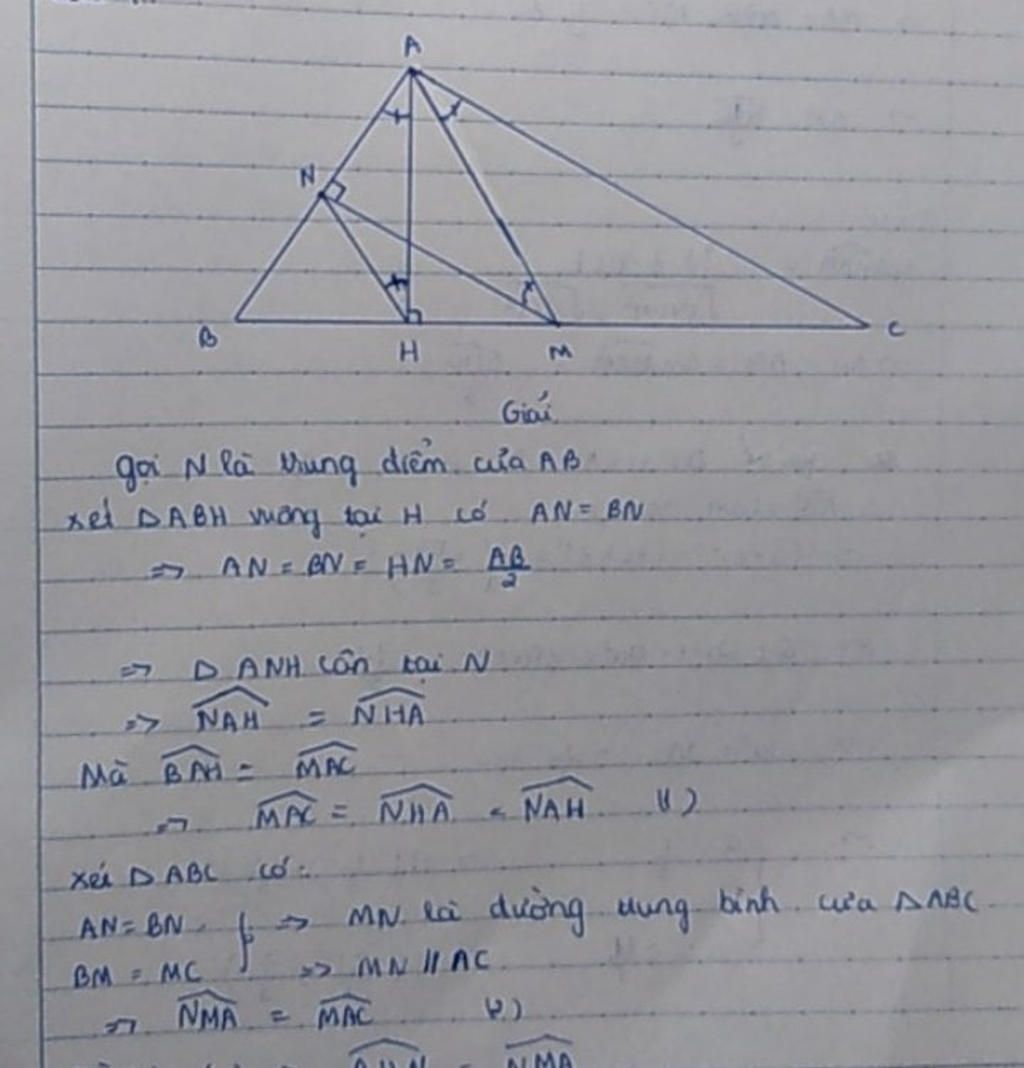 A
N
B
H
M
C
Giải
Gọi N là trung điểm của AB
xét ΔABH vuông tại H có AN = BN
=> AN = BN = HN = AB/2
=> ΔANH cân tại N
=> NAH = NHA
Mà BAH = MAC
=> MAC = NHA = NAH (1)
xét ΔABC có:
AN = BN } => MN là đường trung bình của ΔABC
BM = MC } => MN // AC
=> NMA = MAC (2)
NMA